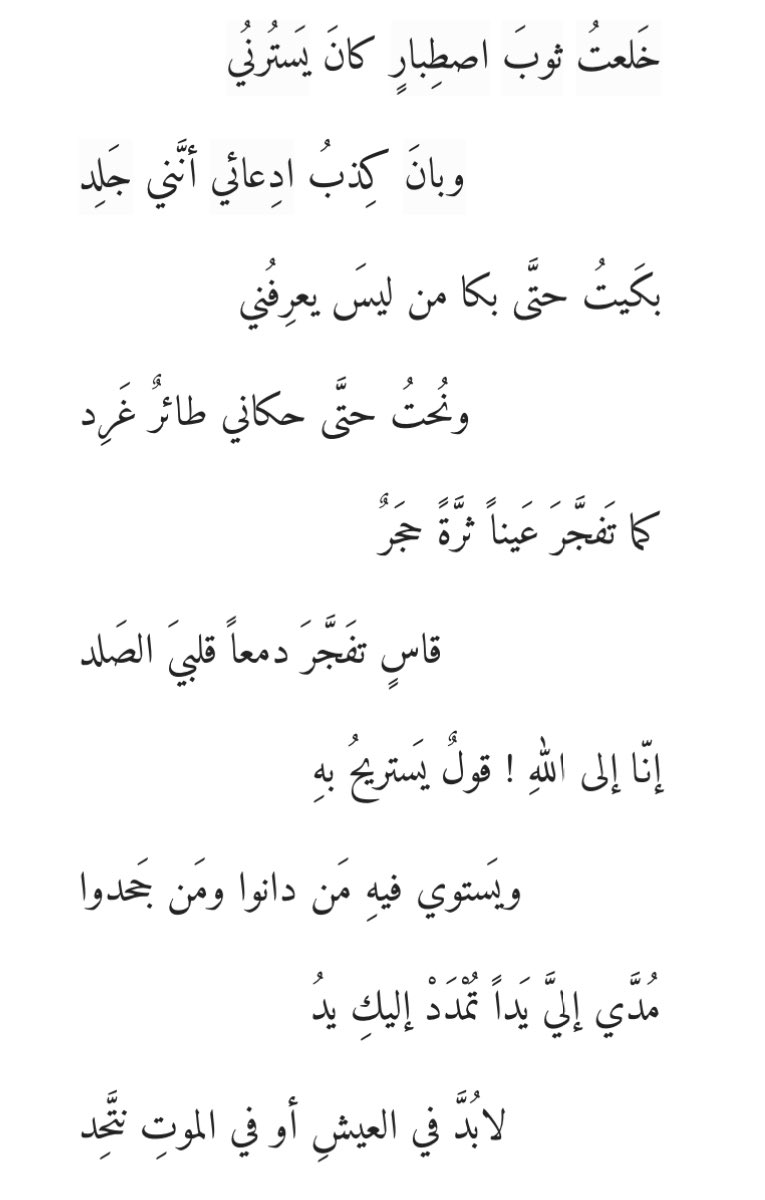 خَلعتُ ثوبَ اصطِبارٍ كانَ يَستُرنُي
وبانَ كِذبُ ادِعائي أنَّني جَلِد
بكَيتُ حتَّى بكا من ليسَ يعرِفُني
ونُحتُ حتَّى حكاني طائرٌ غَرِد
كما تَفجَّرَ عَيناً ثرَّةً حجَرٌ
قاسٍ تفَجَّرَ دمعاً قلبيَ الصَلد
إنّا إلى اللهِ ! قولٌ يَستريحُ بهِ
ويَستوي فيهِ مَن دانوا ومَن جَحدوا
مُدَّي إليَّ يَداً تُمْدَدْ إليكِ يدُ
لابُدَّ في العيشِ أو في الموتِ نتَّحِد